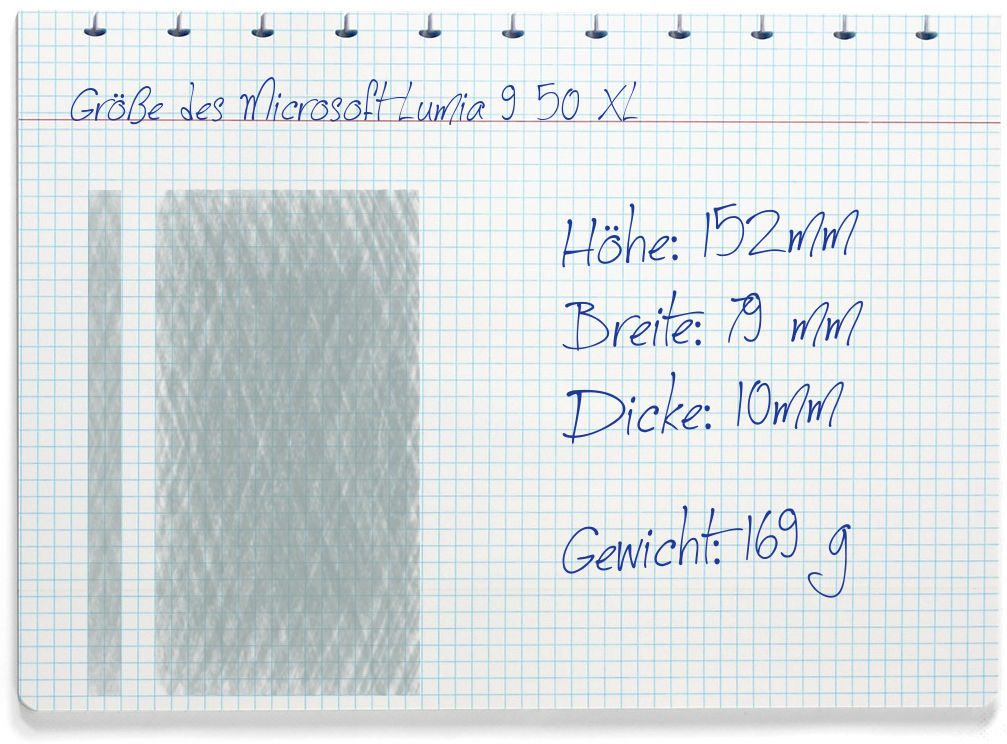 Größe des Microsoft Lumia 9 50 XL
Höhe: 152mm
Breite: 79 mm
Dicke: 10mm
Gewicht: 169 g